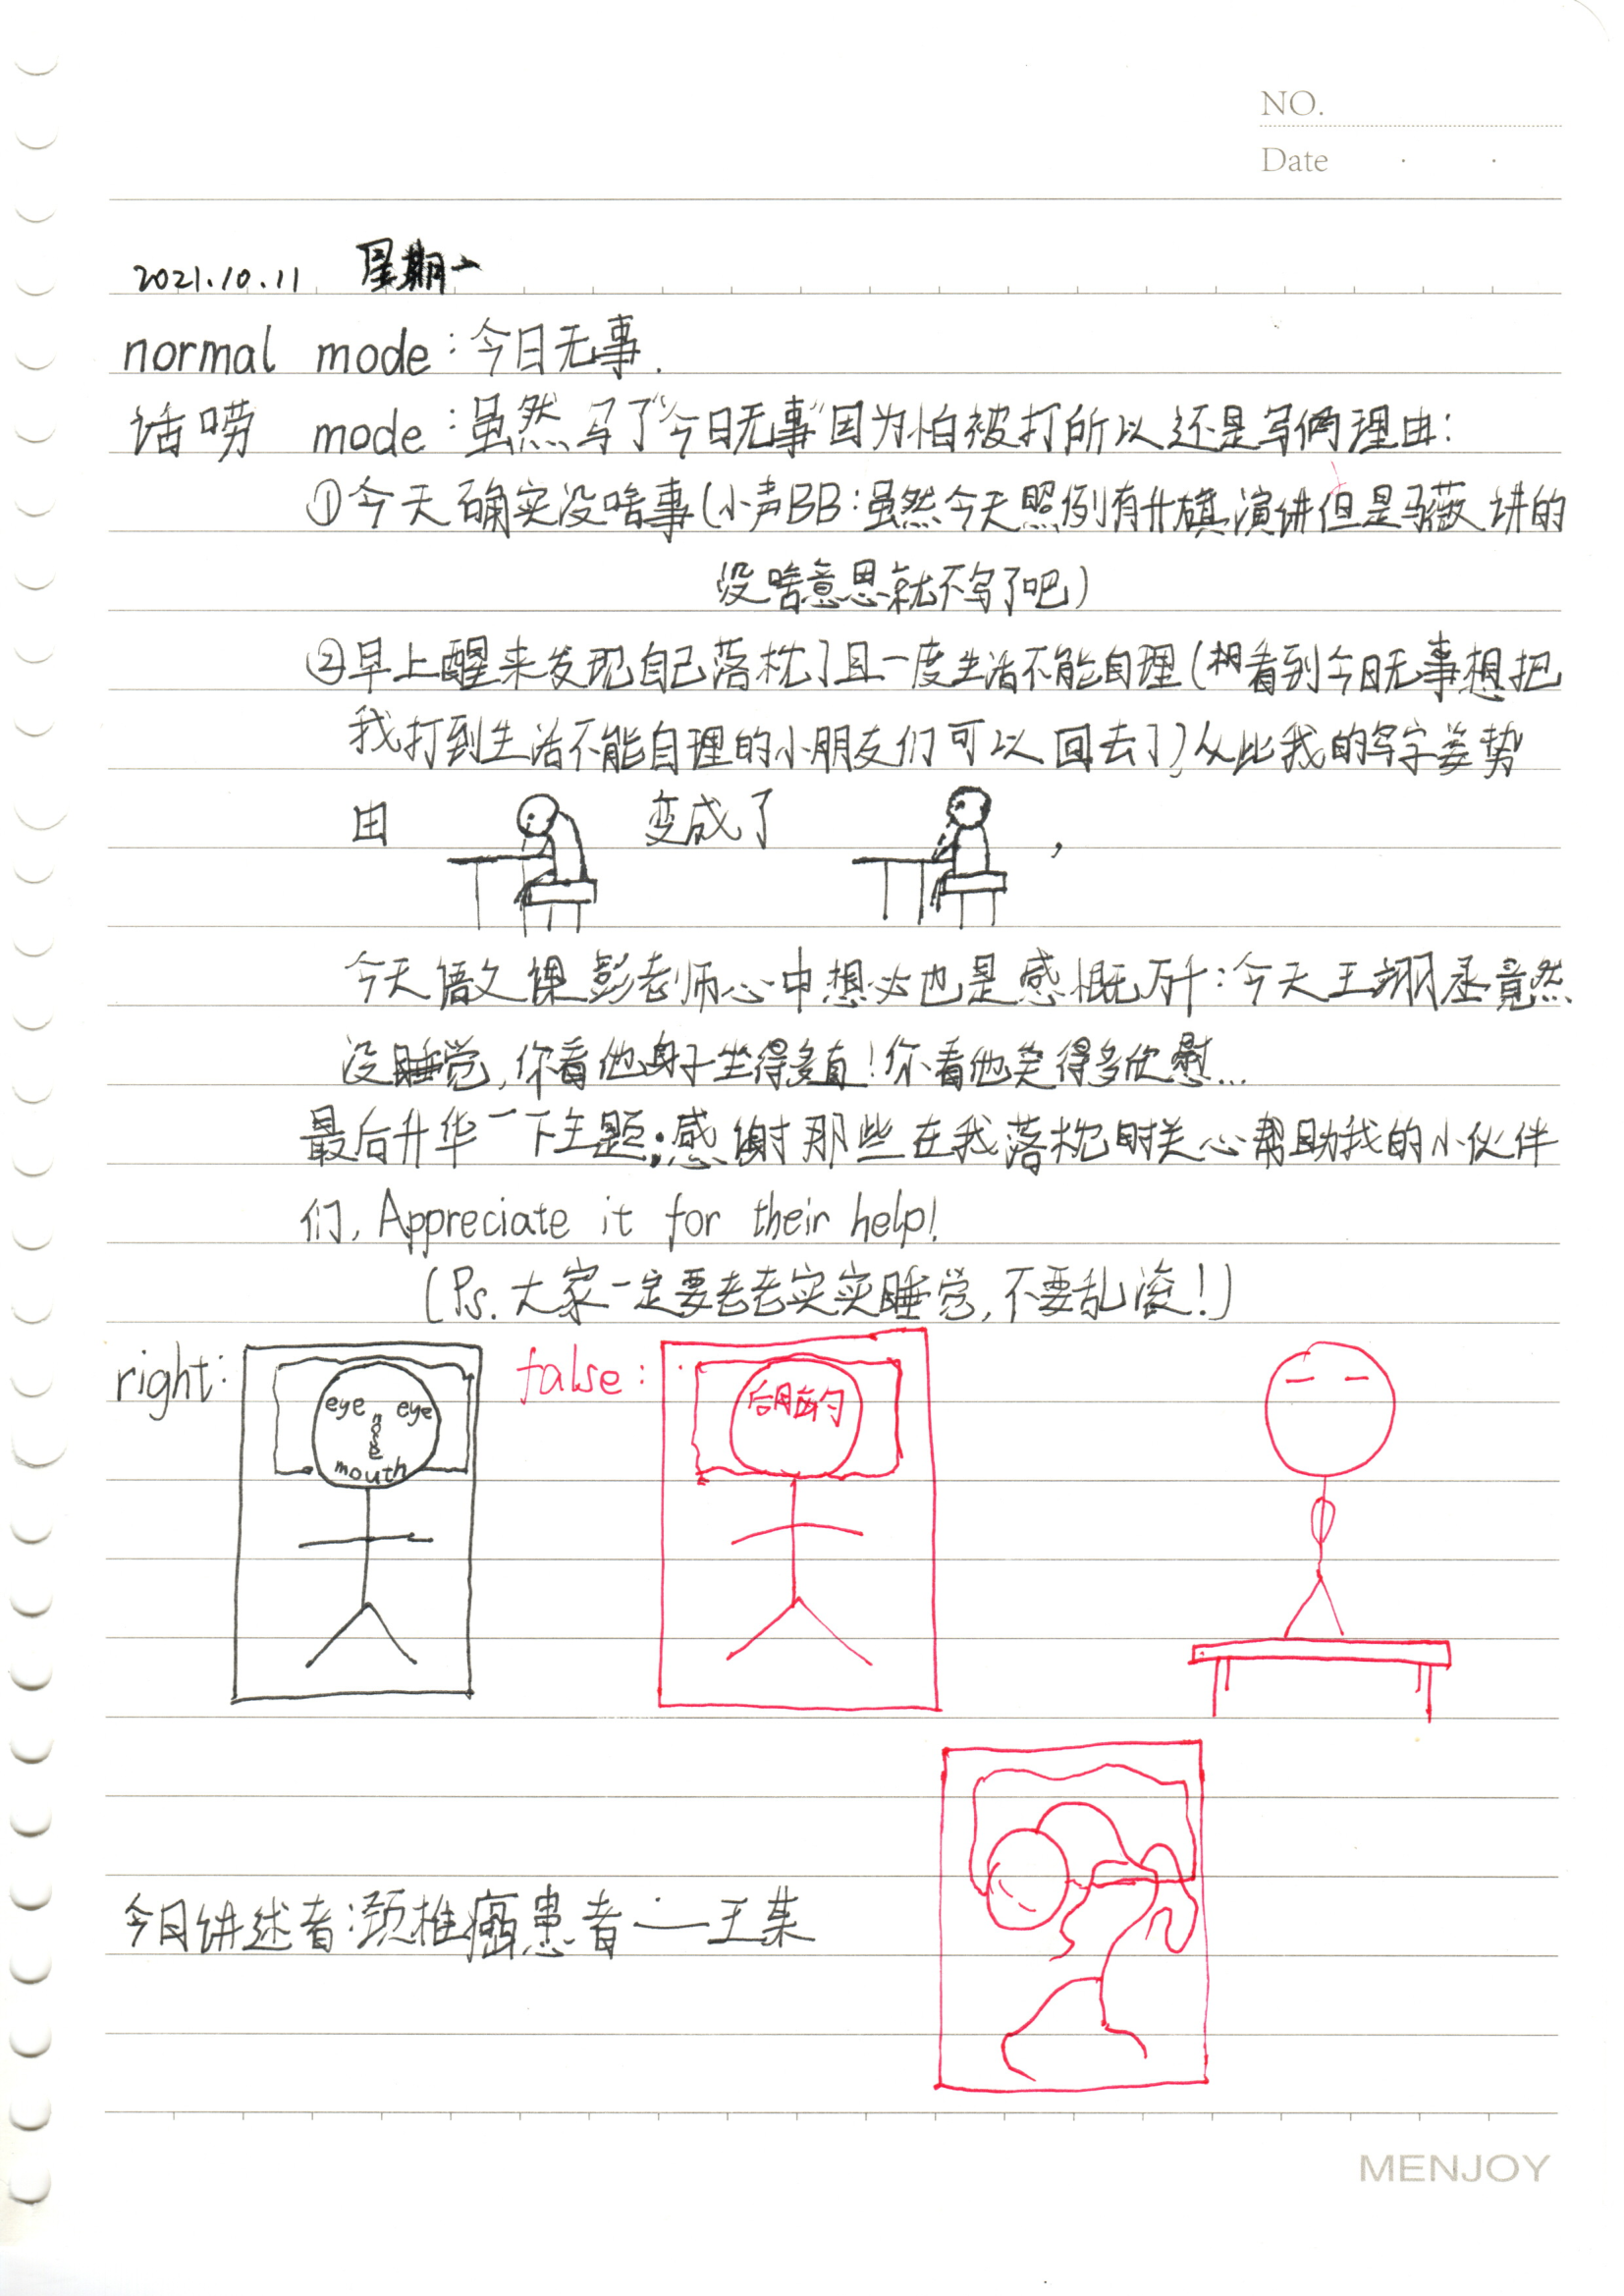 NO.
Date
2021.10.11 星期一
normal mode:今日无事.
话唠 mode:虽然写了"今日无事"因为怕被打所以还是写俩理由:
①今天确实没啥事(小声BB:虽然今天照例有升旗演讲但是马薇讲的
没啥意思就不写了吧)
②早上醒来发现自己落枕了且一度生活不能自理(看到今日无事想把
我打到生活不能自理的小朋友们可以回去了),从此我的写字姿势
由 变成了 ,
今天语文课彭老师心中想必也是感慨万千:今天王翔丞竟然
没睡觉,你看他身子坐得多直!你看他笑得多欣慰...
最后升华一下主题:感谢那些在我落枕时关心帮助我的小伙伴
们, Appreciate it for their help!
(Ps.大家一定要老老实实睡觉,不要乱滚!)
right: false:
eye eye 后脑勺
nose
mouth
今日讲述者:颈椎癌患者——王某
MENJOY